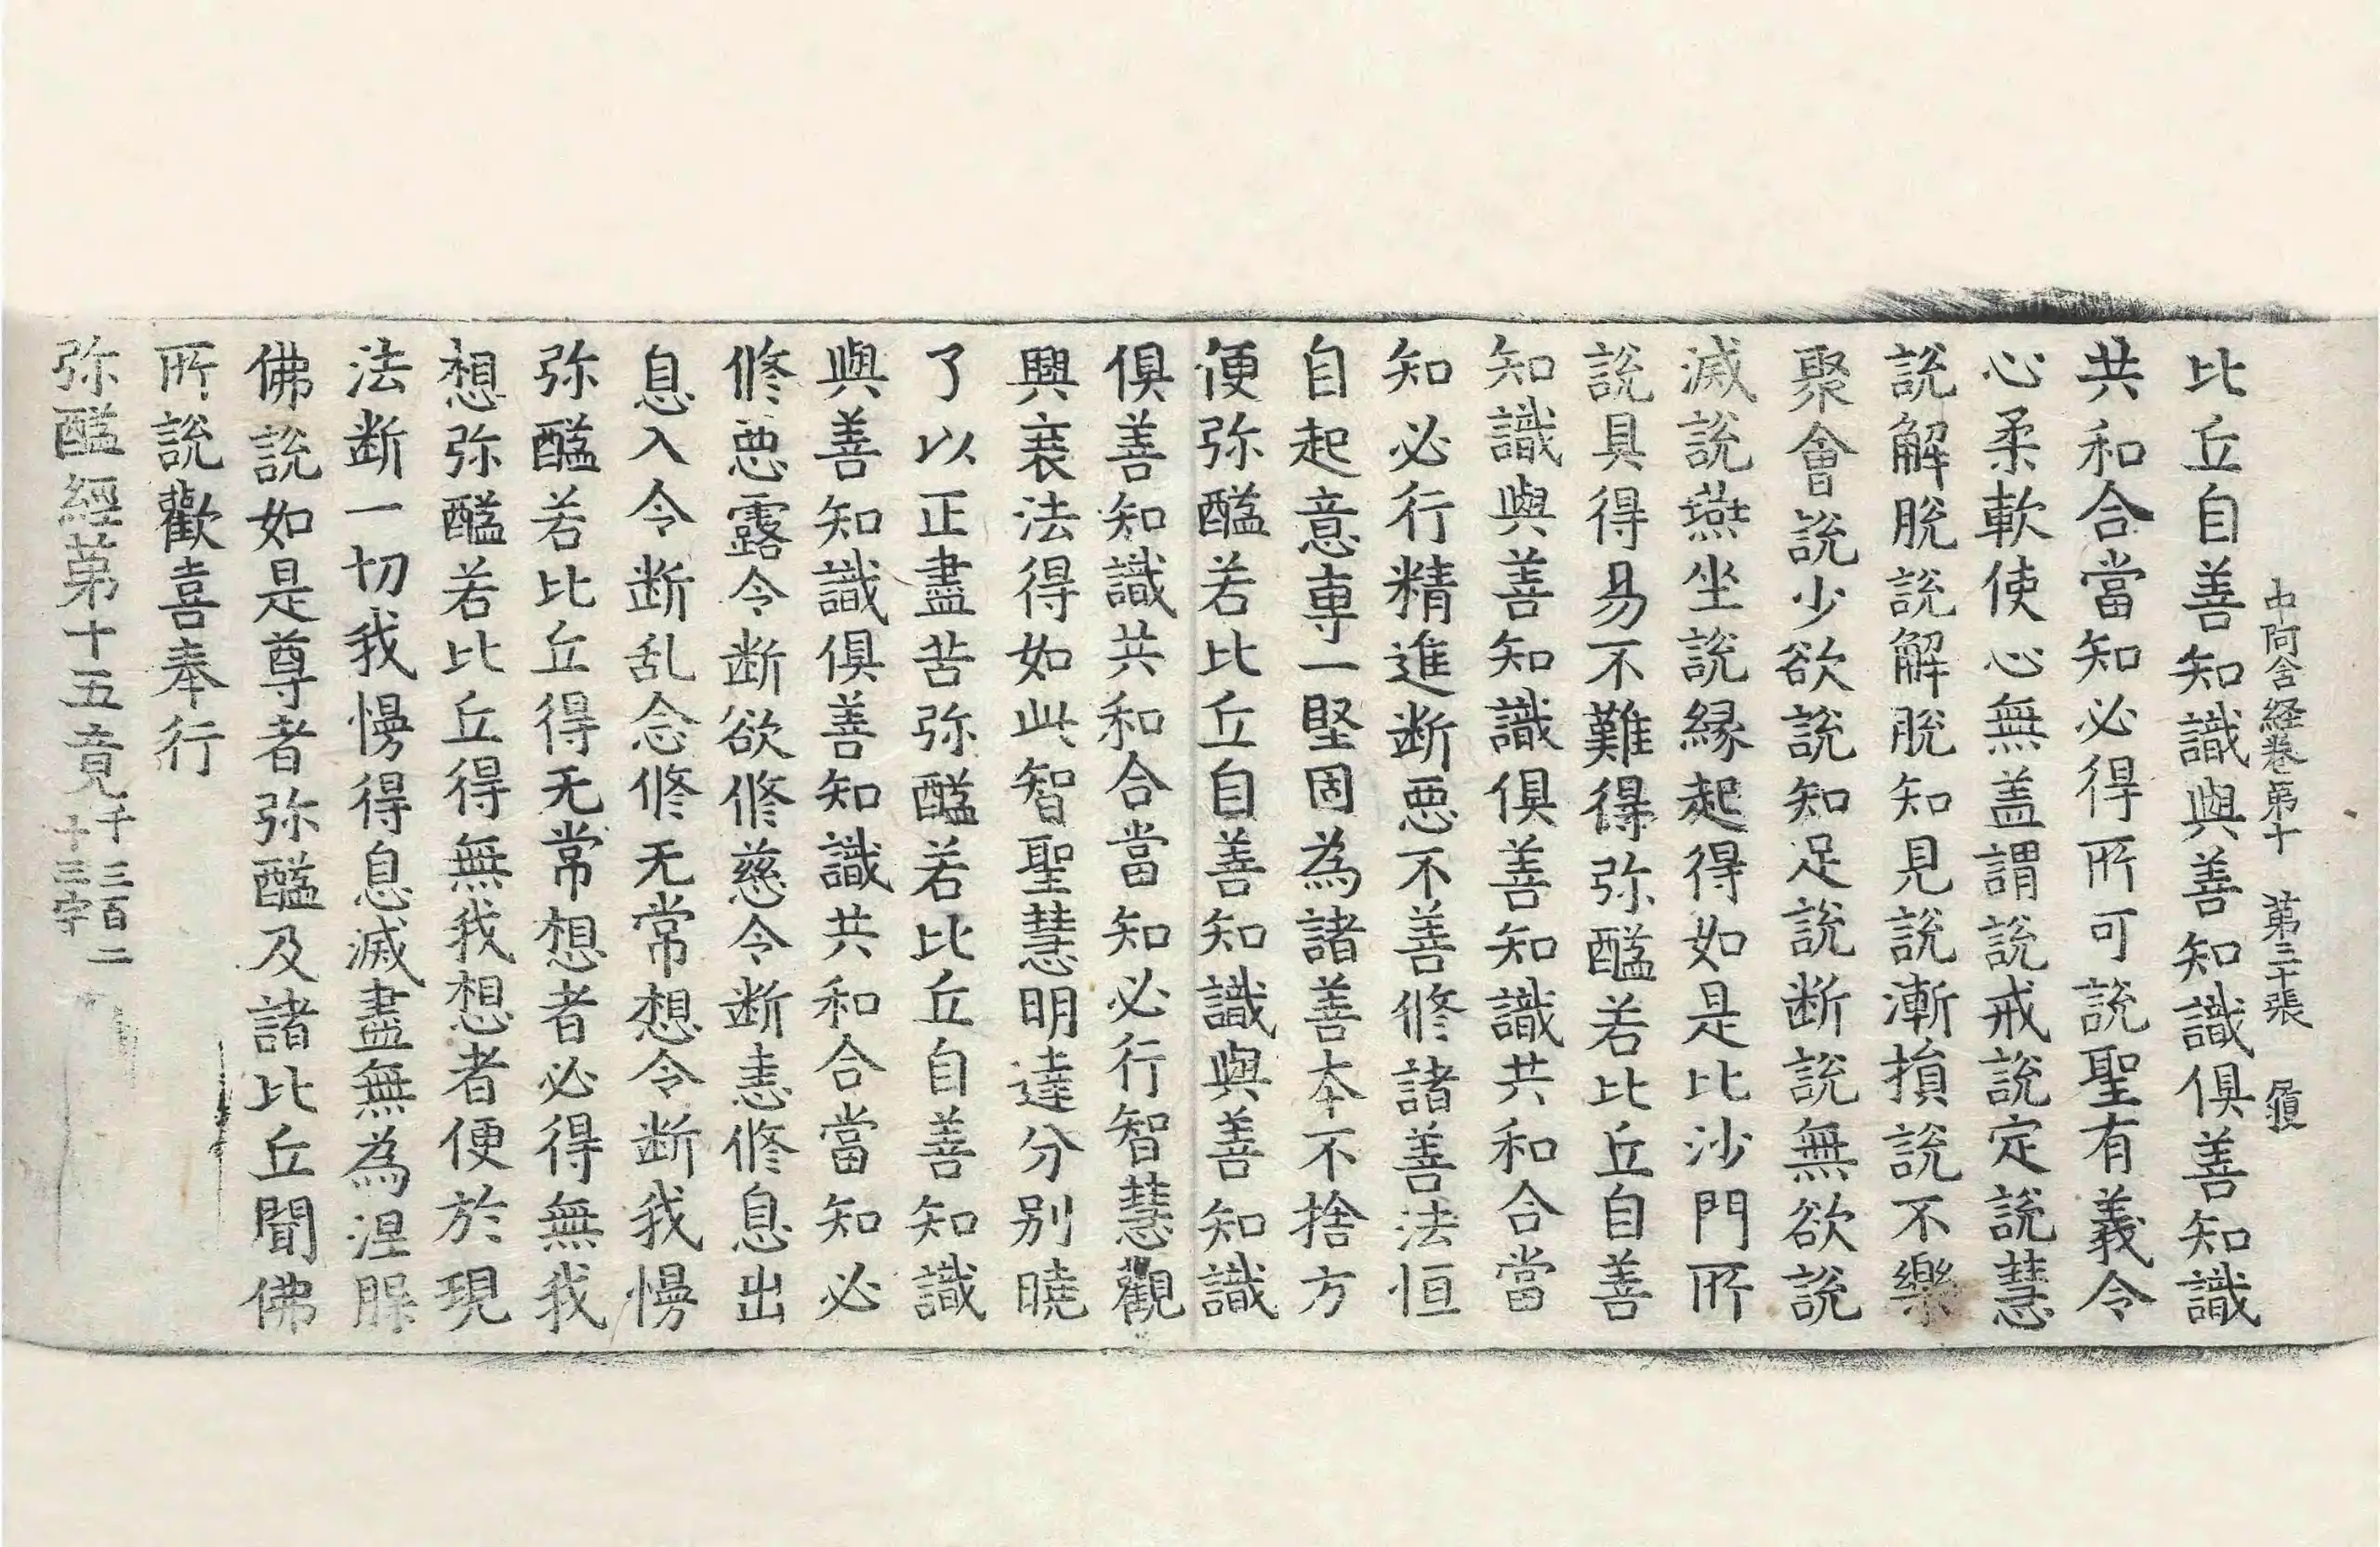 中阿含経卷第十　第三十張　履
比丘自善知識與善知識俱善知識
共和合當知必得所可說聖有義令
心柔軟使心無盖謂說戒說定說慧
說解脫說解脫知見說漸損說不樂
聚會說少欲說知足說断說無欲說
滅說燕坐說縁起得如是比沙門所
說具得易不難得弥醯若比丘自善
知識與善知識俱善知識共和合當
知必行精進断悪不善修諸善法恒
自起意專一堅固為諸善本不捨方
便弥醯若比丘自善知識與善知識
俱善知識共和合當知必行智慧觀
興衰法得如此智聖慧明達分别曉
了以正盡苦弥醯若比丘自善知識
與善知識俱善知識共和合當知必
修悪露令断欲修慈令断恚修息出
息入令断乱念修无常想令断我慢
弥醯若比丘得无常想者必得無我
想弥醯若比丘得無我想者便於現
法断一切我慢得息滅盡無為涅槃
佛說如是尊者弥醯及諸比丘聞佛
所說歡喜奉行
弥醯經第十五竟千三百二十三字